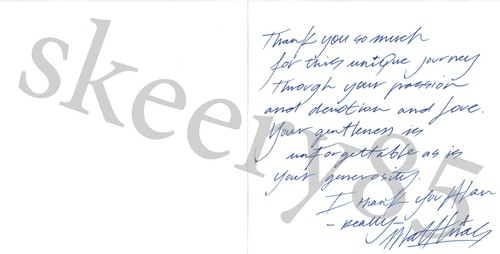 skeery85
Thank you so much
for this unique journey
through your passion
and devotion and love.
Your gentleness is
unforgettable as is
your generosity.
I thank you Alan
- Really -